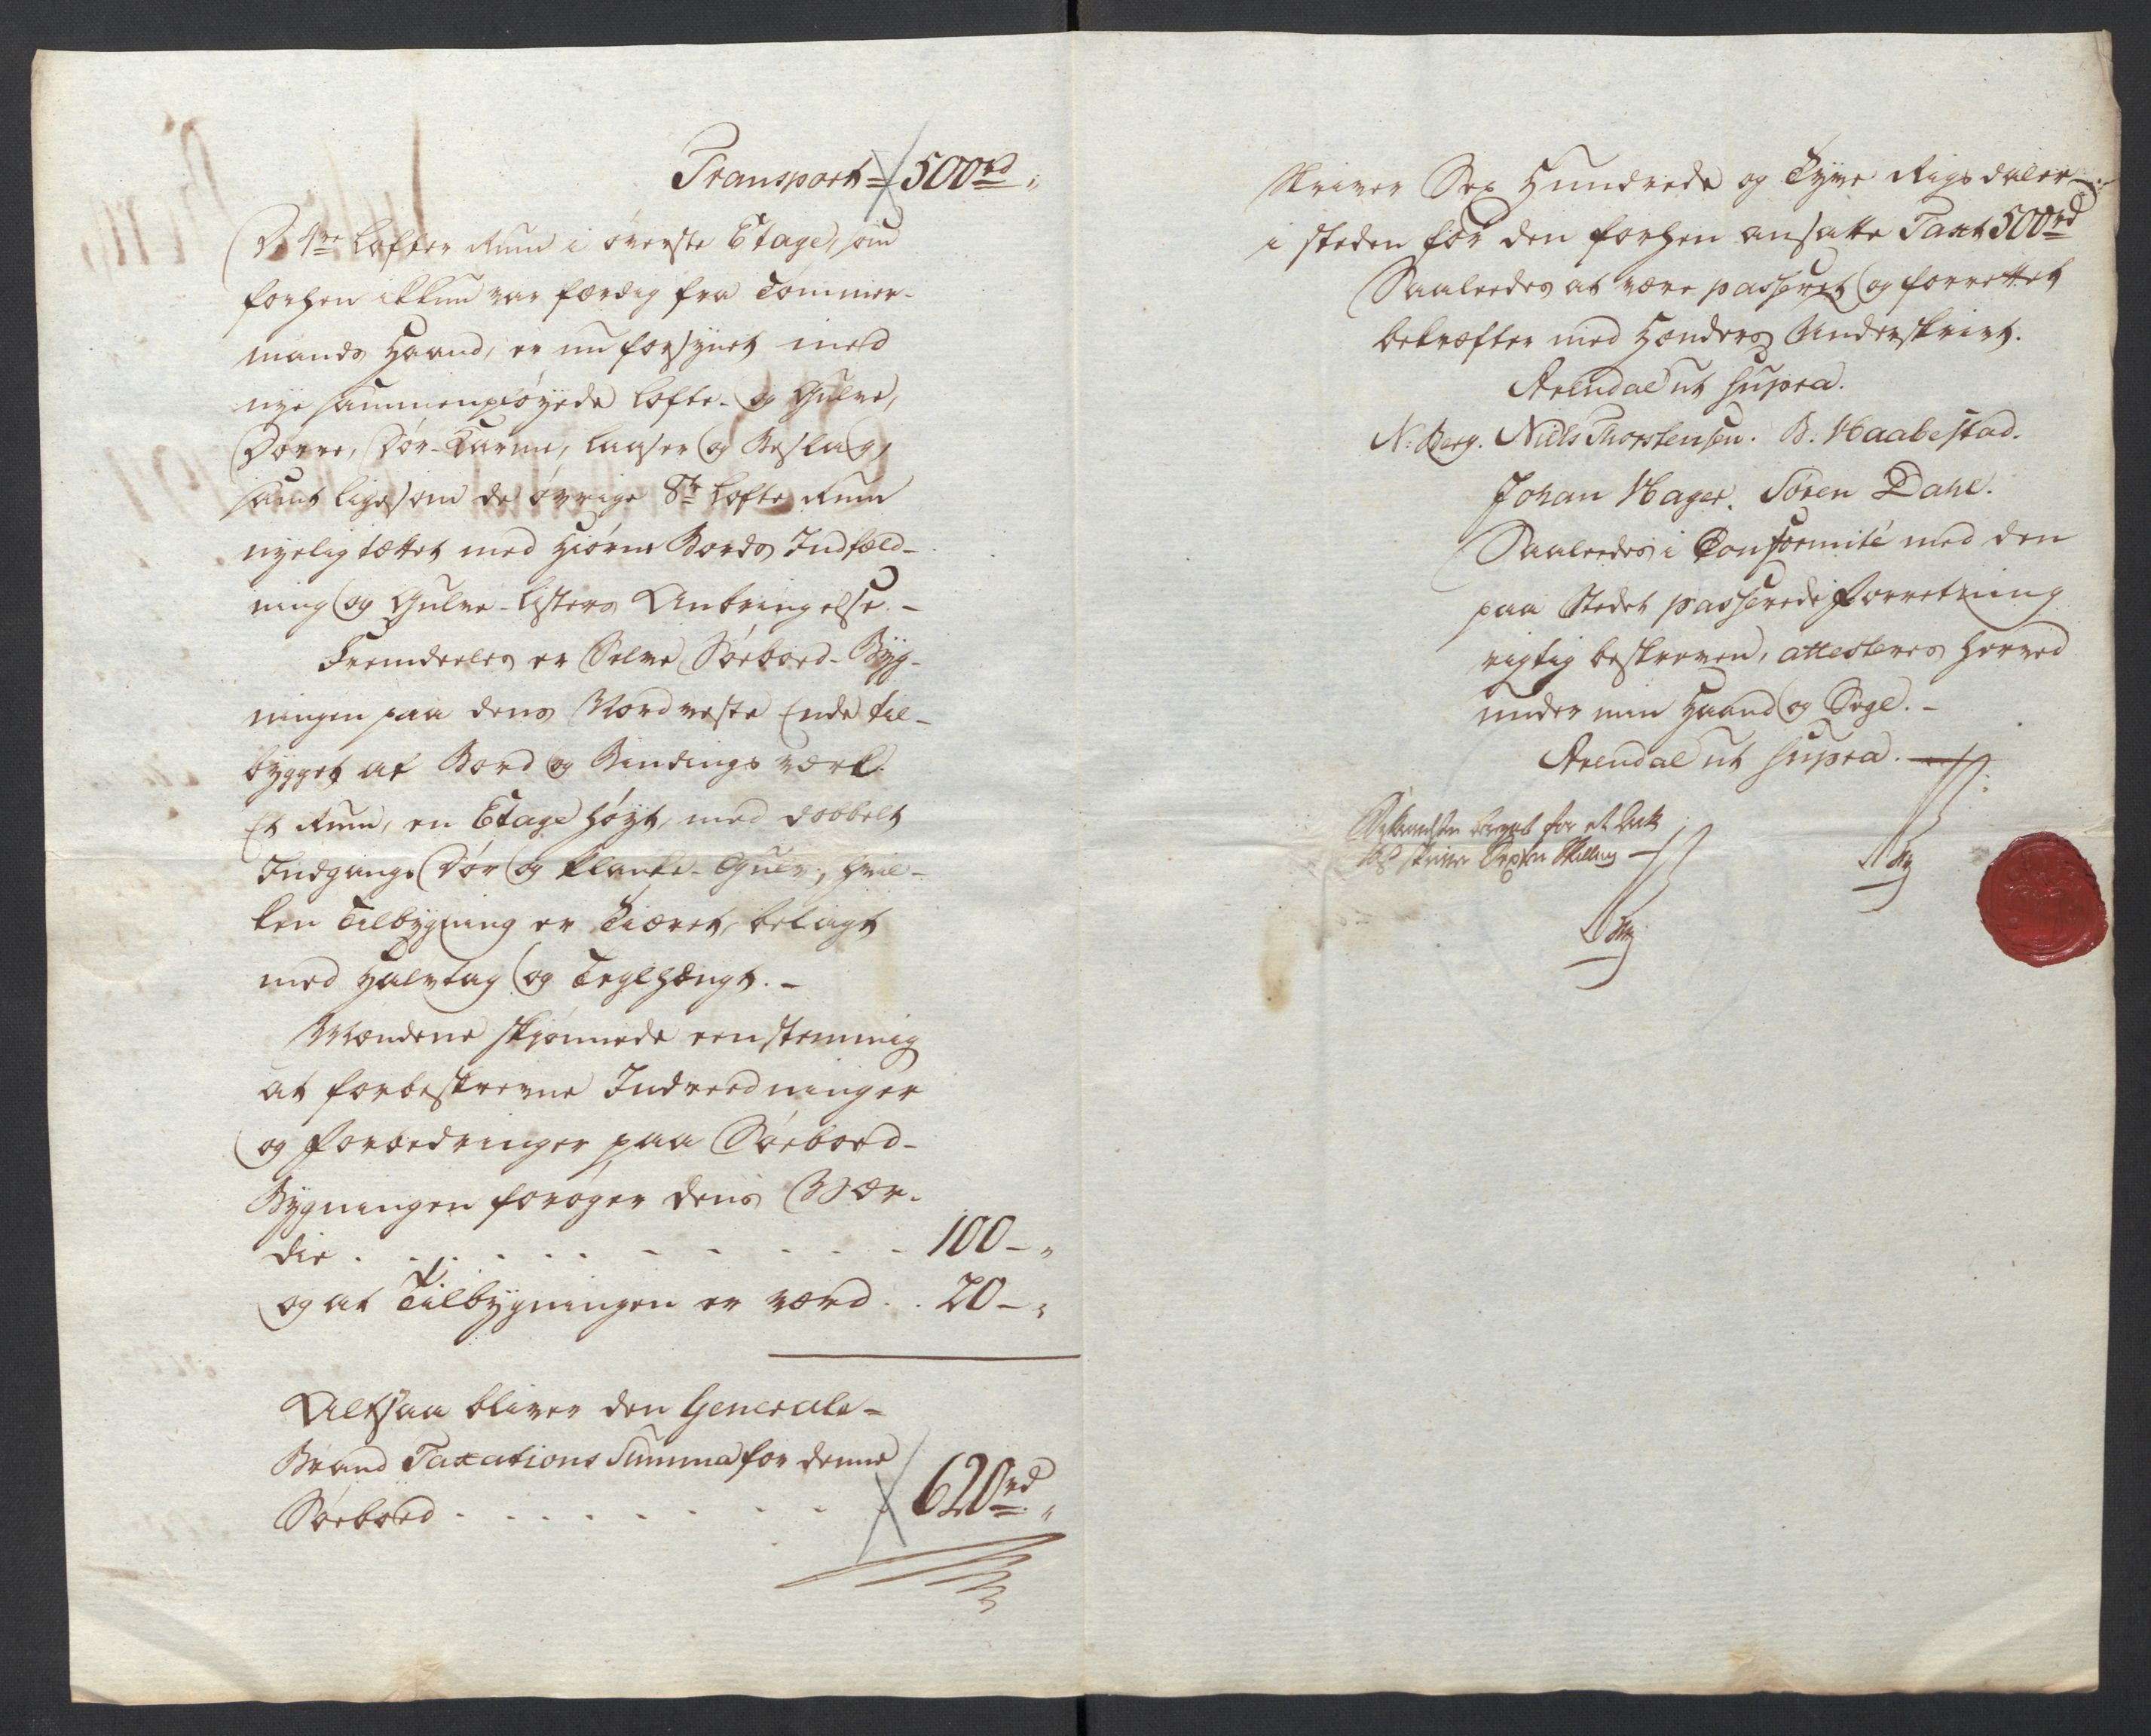 Transport = 500rd "
De 4re Lofter Rum i øverste Etage, som
forhen ikkun var færdig fra Tømmer-
mands Haand, er nu forsynet med
nye sammenpløyede Lofte- og Gulve,
Dørre, Dør-Karme, Laaser og Beslag,
samt ligesom de øvrige 8te Lofte Rum
nyelig tættet med Hiørne Bords Indfæld-
ning og Gulve-Listers Anbringelse. -
Fremdeeles er Selve Søeboed-Byg-
ningen paa dens Nordveste Ende til-
bygget af Bord og Bindings værk
Et Rum, en Etage høyt, med dobbelt
Indgangs Dør og Planke-Gulv, hvil-
ken Tilbygning er Tiæret, belagt
med Halvtag og Teglhængt. -
Mændene skjønnede eenstemmig
at forbeskrevne Indreedninger
og Forbedringer paa Søeboed-
Bygningen forøger dens Vær-
die . . . . . . . . . . 100 - "
og at Tilbygningen er værd . . 20 - "
Altsaa bliver den Generale-
Brand Taxations Summa for denne
Søeboed . . . . . . . . 620rd "
skriver Sex Hundrede og Tyve Rigsdaler
i steden for den forhen ansatte Taxt 500rd
Saaledes at være passeret og forrettet
bekræfter med Hænders Underskrivt.
Arendal ut supra.
N: Berg. Niels Thorstensen. B. Haabestad.
Johan Hager. Søren Dahl.
Saaledes i Conformité med den
paa Stedet passerede Forretning
rigtig beskreven, attesteres herved
under min Haand og Segl. -
Arendal ut supra.
for et Ark
skriver Sexten Skilling